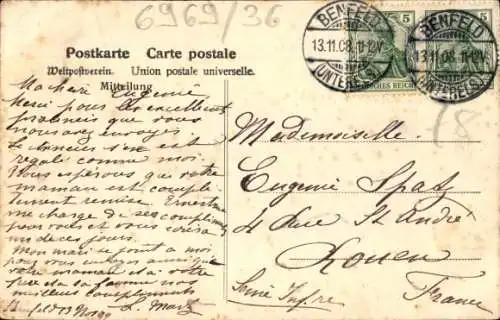 6969/36
Postkarte Carte postale
Weltpostverein. Union postale universelle.
Mitteilung
BENFELD
13.11.08. 11-12V
(UNTERELS.)
BENFELD
13.11.08. 11-12V
(UNTERELS.)
5
5
DEUTSCHES REICH
18
Ma chère Eugénie
Merci pour les excellents
pralinés que vous
nous avez envoyés.
s'en est
régalé comme moi.
Nous espérons que votre
maman est complè
tement remise. Ernestine
me charge de ses compliments
pour vous et vous écrira
un de ces jours.
Mon mari se joint à moi
pour vous envoyer ainsi que
votre maman et à votre
père et à sa femme nos
meilleurs compliments
Benfeld 13 Nov
Mademoiselle
Eugénie Spatz
4 Rue St André
Rouen
Seine Infre
France